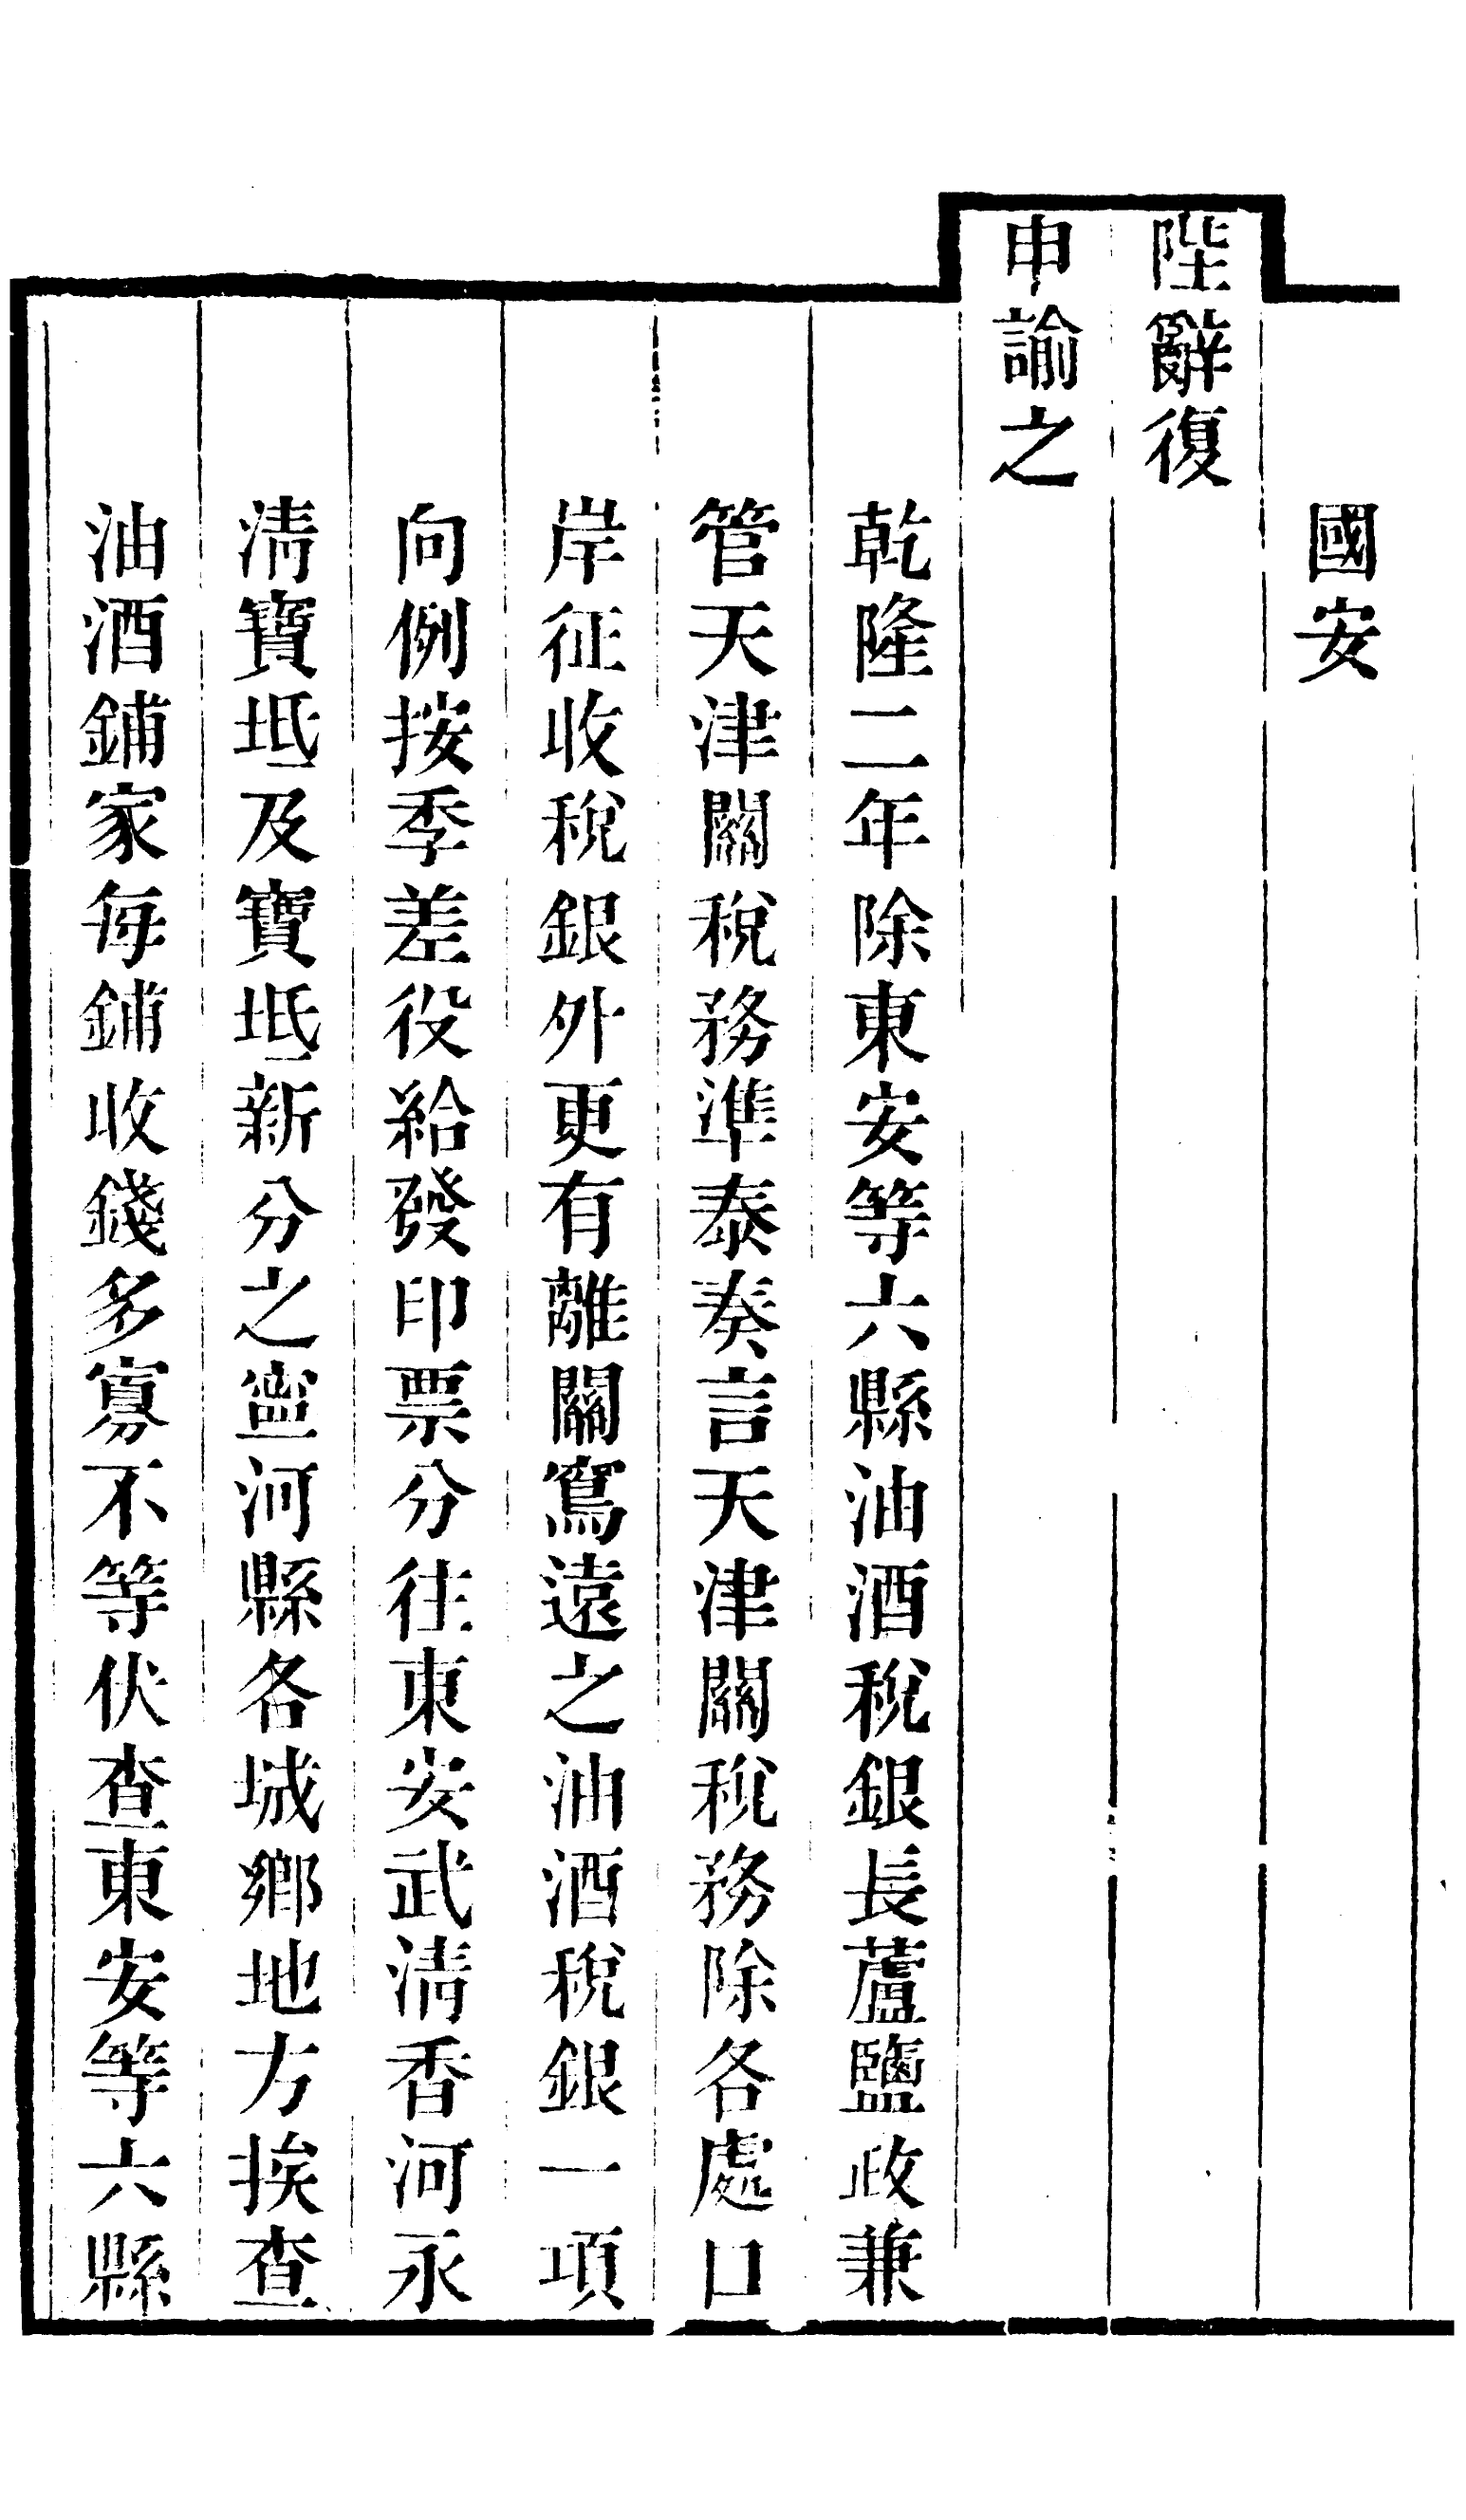 國安
陛辭復
申諭之
乾隆二年除東安等六縣油酒稅銀長蘆鹽政兼
管天津關稅務準泰奏言天津關稅務除各處口
岸征收稅銀外更有離關窵遠之油酒稅銀一項
向例按季差役給發印票分往東安武清香河永
清寶坻及寶坻新分之寍河縣各城鄉地方挨查
油酒鋪家每鋪收錢多寡不等伏查東安等六縣